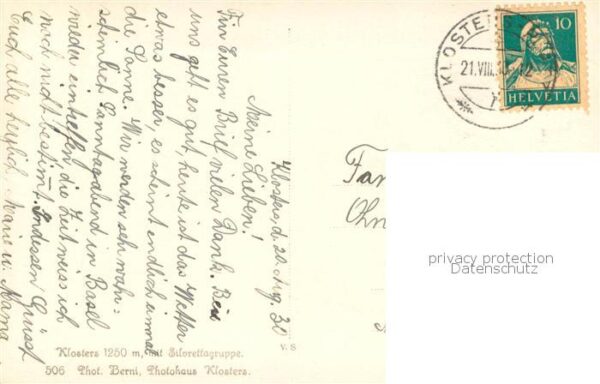 Klosters, d. 20. Aug. 30
Meine Lieben!
Für Euren Brief vielen Dank. Bei
uns geht es gut, heute ist das Wetter
etwas besser, es scheint endlich einmal
die Sonne. Wir werden sehr wahr-
scheinlich Sonntagabend in Basel
wieder eintreffen, die Zeit weiss ich
noch nicht bestimmt. Indessen Grüsst
Euch alle herzlich Marie u. Mama
KLOSTE
21.VIII.
10
HELVETIA
Fam
Ohn
privacy protection
Datenschutz
v. S
Klosters 1250 m, mit Silvrettagruppe.
506 Phot. Berni, Photohaus Klosters.